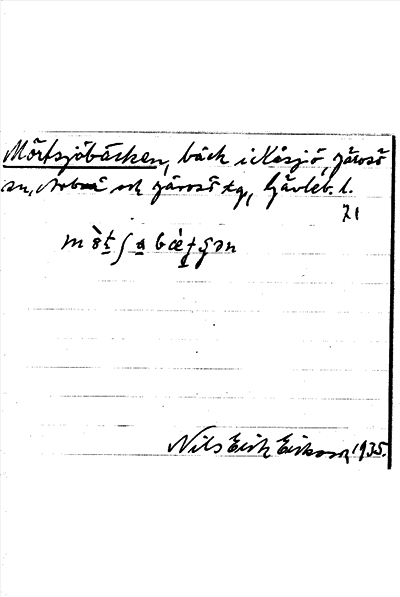 Mörtsjöbäcken, bäck i Kåsjö, Järvsö
sn, Arbrå och Järvsö tg, Gävleb. l.
71
Nils Erik Eriksson 1935.